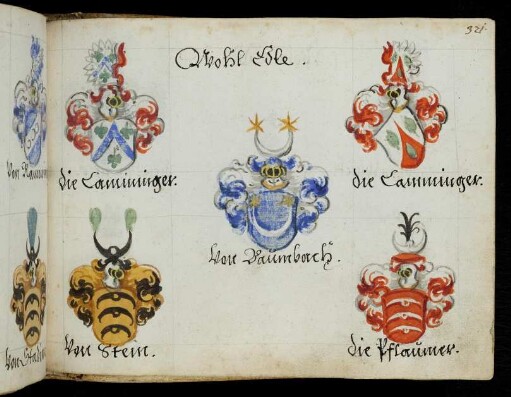 321.
Wohl Edle.
Die Camminger.
Die Camminger.
Von Baumbach.
Von Stein.
Die Pflaumer.